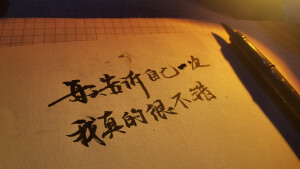 再告诉自己一次
我真的很不错